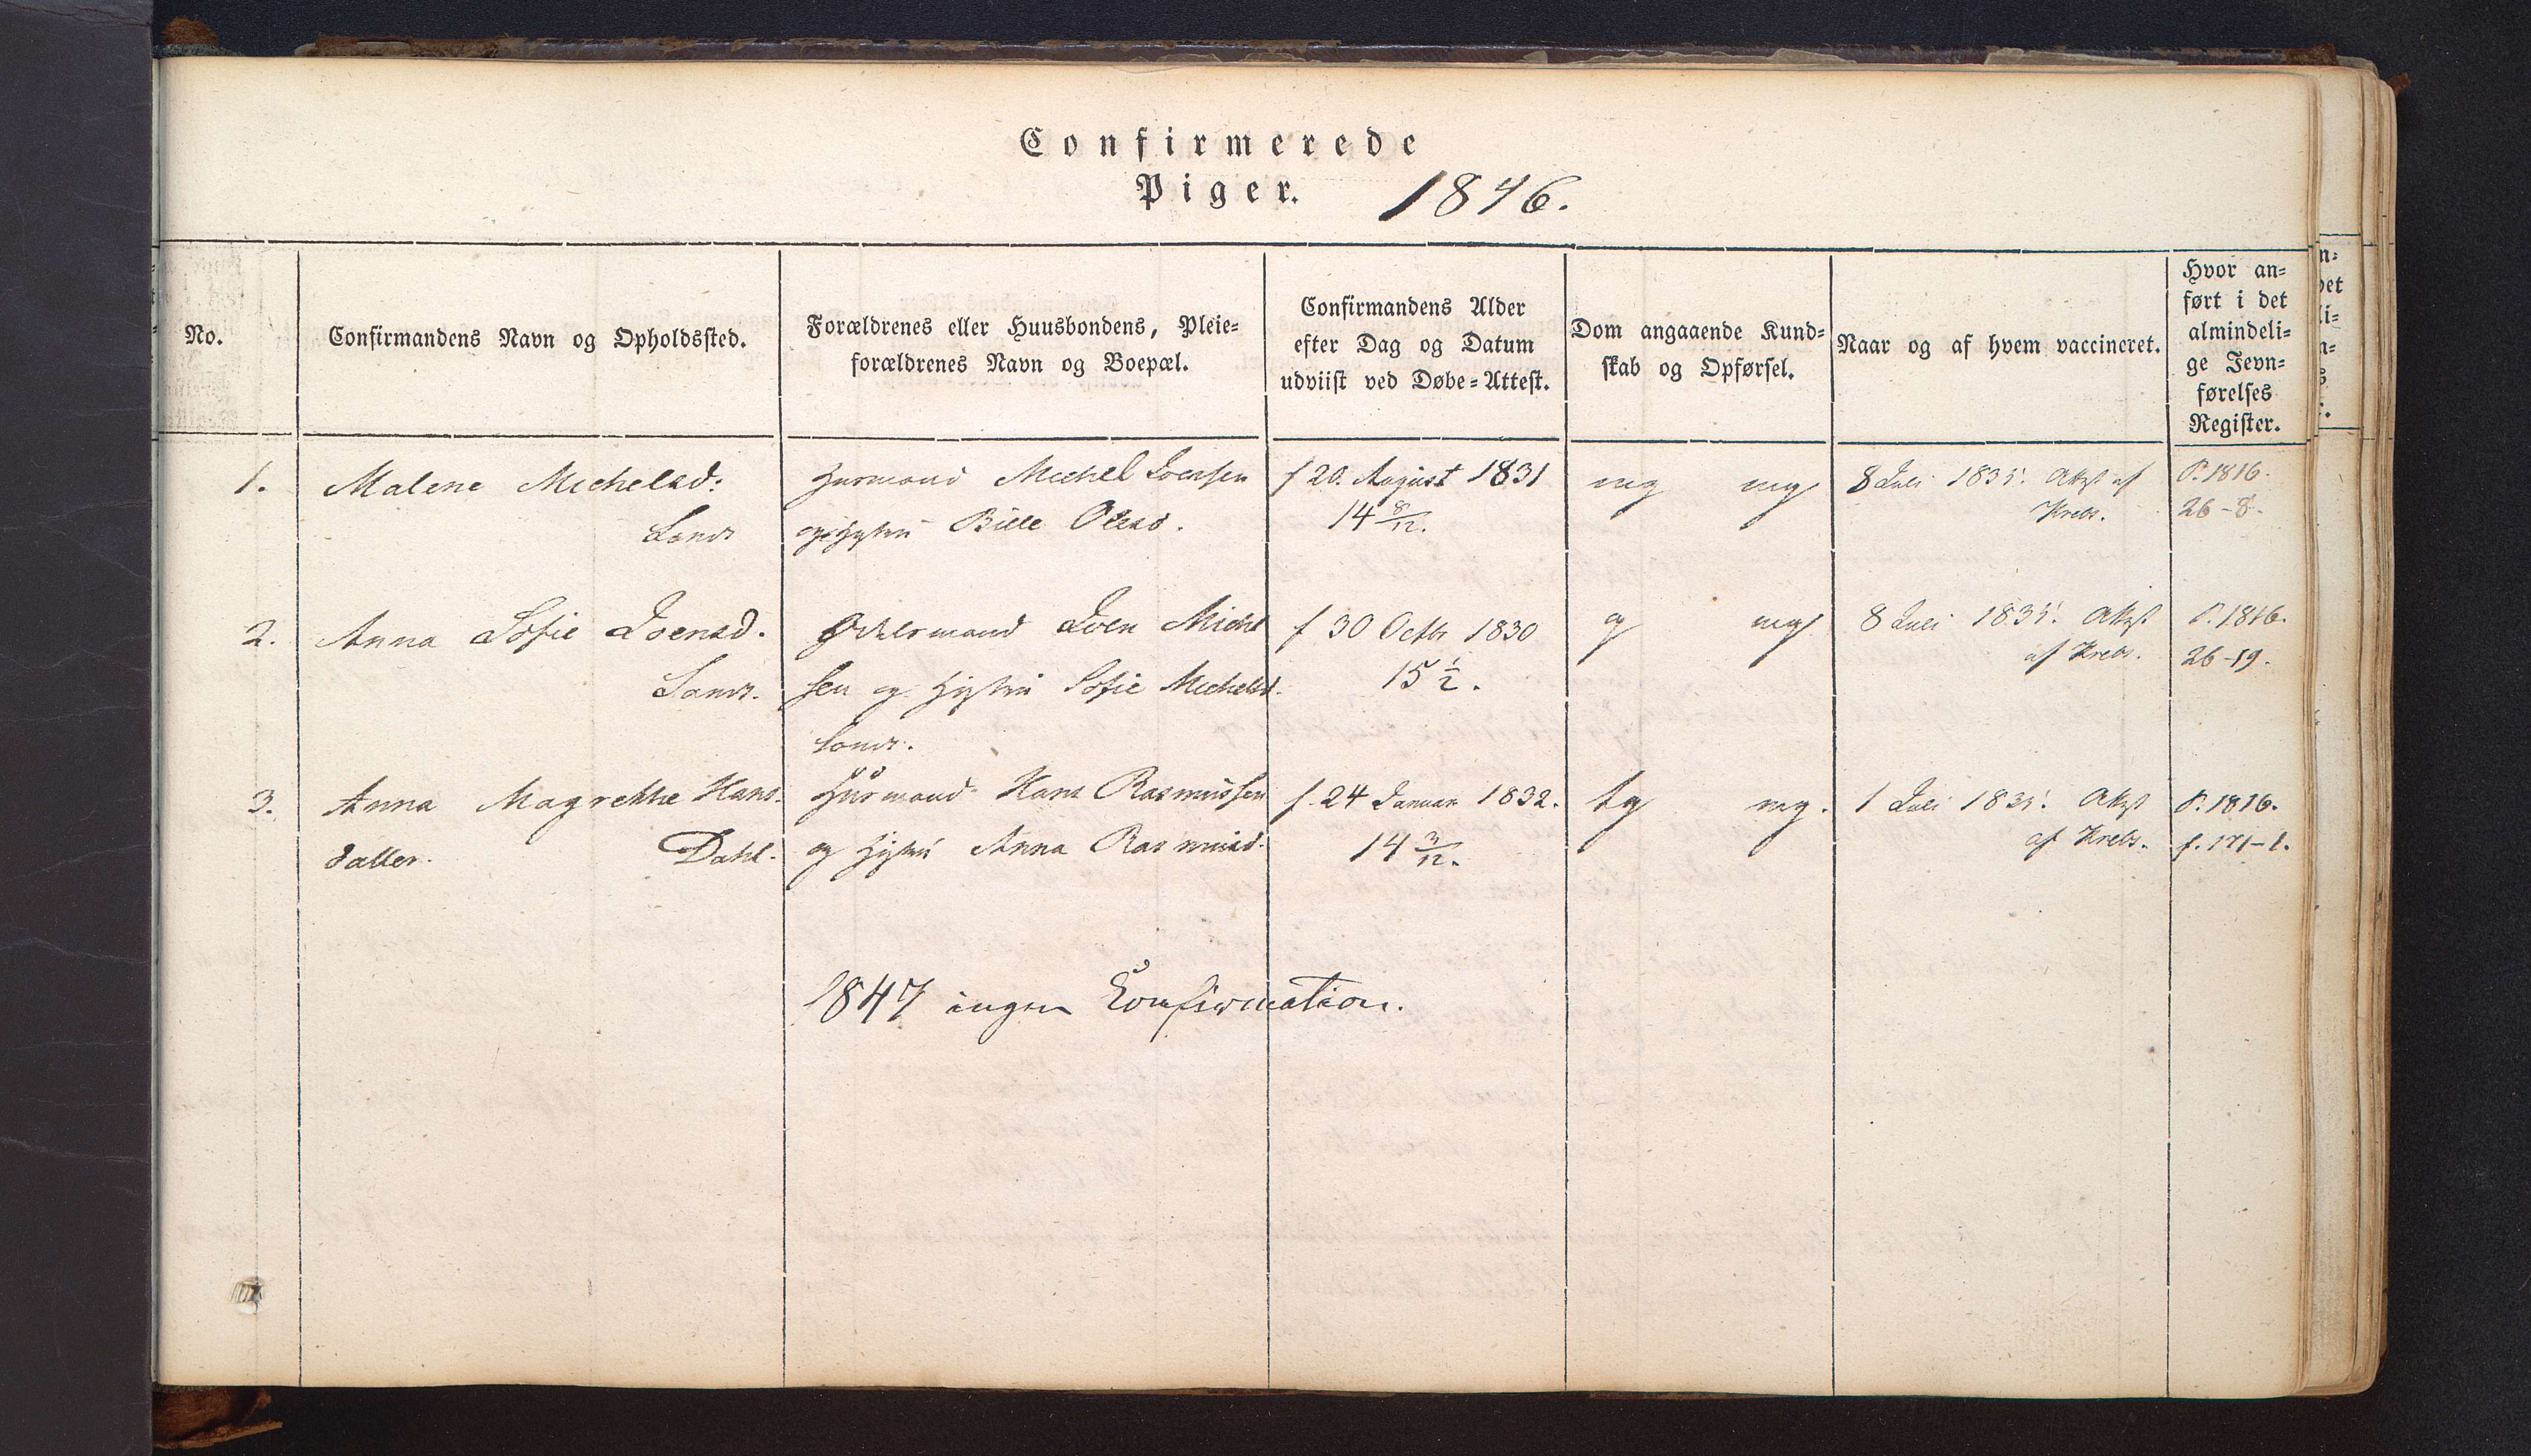 Confirmerede
Piger. 1846.
No.
Confirmandens Navn og Opholdssted.
Forældrenes eller Huusbondens, Pleie=
forældrenes Navn og Boepæl.
Confirmandens Alder
efter Dag og Datum
udviist ved Døbe=Attest.
Dom angaaende Kund=
skab og Opførsel.
Naar og af hvem vaccineret.
Hvor an=
ført i det
almindeli=
ge Jevn=
førelses
Register.
1.
Malene Michelsd:
Sands
Huusmand Michel Joensen
og Hustru Bille Olesd.
f 20. August 1831
14 8/12.
mg mg
8 Juli 1835. Attest af
Krebs.
P. 1816.
26-8.
2.
Anna Sofie Joensd.
Sands.
Joen Michel
sen og Hustru Sofie Michelsd.
Sands.
f 30 Octbr 1830
15 1/2.
g mg
8 Juli 1835. Attest
af Krebs.
P. 1816.
26-19.
3.
Anna Magrethe Hans-
datter. Dahl.
Huusmand Hans Rasmussen
og Hustru Anna Rasmusd.
f. 24 Januar 1832.
14 3/12.
tg mg.
1 Juli 1835. Attest
af Krebs.
P. 1816.
f. 171-1.
1847 ingen Confirmation.